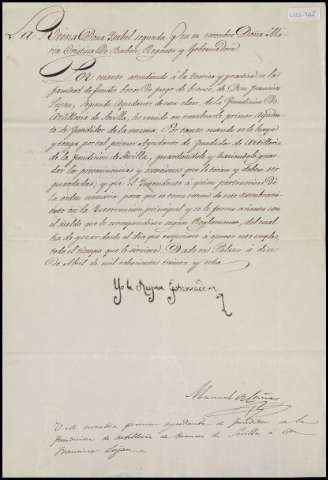 La Reina Doña Isabel segunda y en su nombre Doña Ma-
ria Cristina de Borbon, Regente y Gobernadora
Por cuanto atendiendo á la teoria y practica en las
faenas de fundir bocas de fuego de bronce, de Don Francisco
Luxan, Segundo Ayudante de esa clase, de la Fundicion de
Artilleria de Sevilla, he venido en nombrarle primer Ayudan-
te de Fundidor de la misma. Por tanto mando se le haya
y tenga por tal primer Ayudante de Fundidor de Artilleria
de la fundicion de Sevilla, guardandole y haciendole guar-
dar las preeminencias y exenciones que le tocan y deben ser
guardadas; y que el Intendente á quien perteneciere dé
la orden necesaria, para que se tome razon de este nombramien-
to en la Intervencion principal y se le forme asiento con
el sueldo que le correspondiere segun Reglamento, del cual
ha de gozar desde el dia que empezare á ejercer este empleo,
todo el tiempo que le sirviere. Dado en Palacio á diez
de Abril de mil ochocientos treinta y ocho.
Yo la Reyna Gobernadora
Manuel de
V. M. nombra primer ayudante de fundidor de la
fundicion de artilleria de bronces de Sevilla á Don
Francisco Lujan